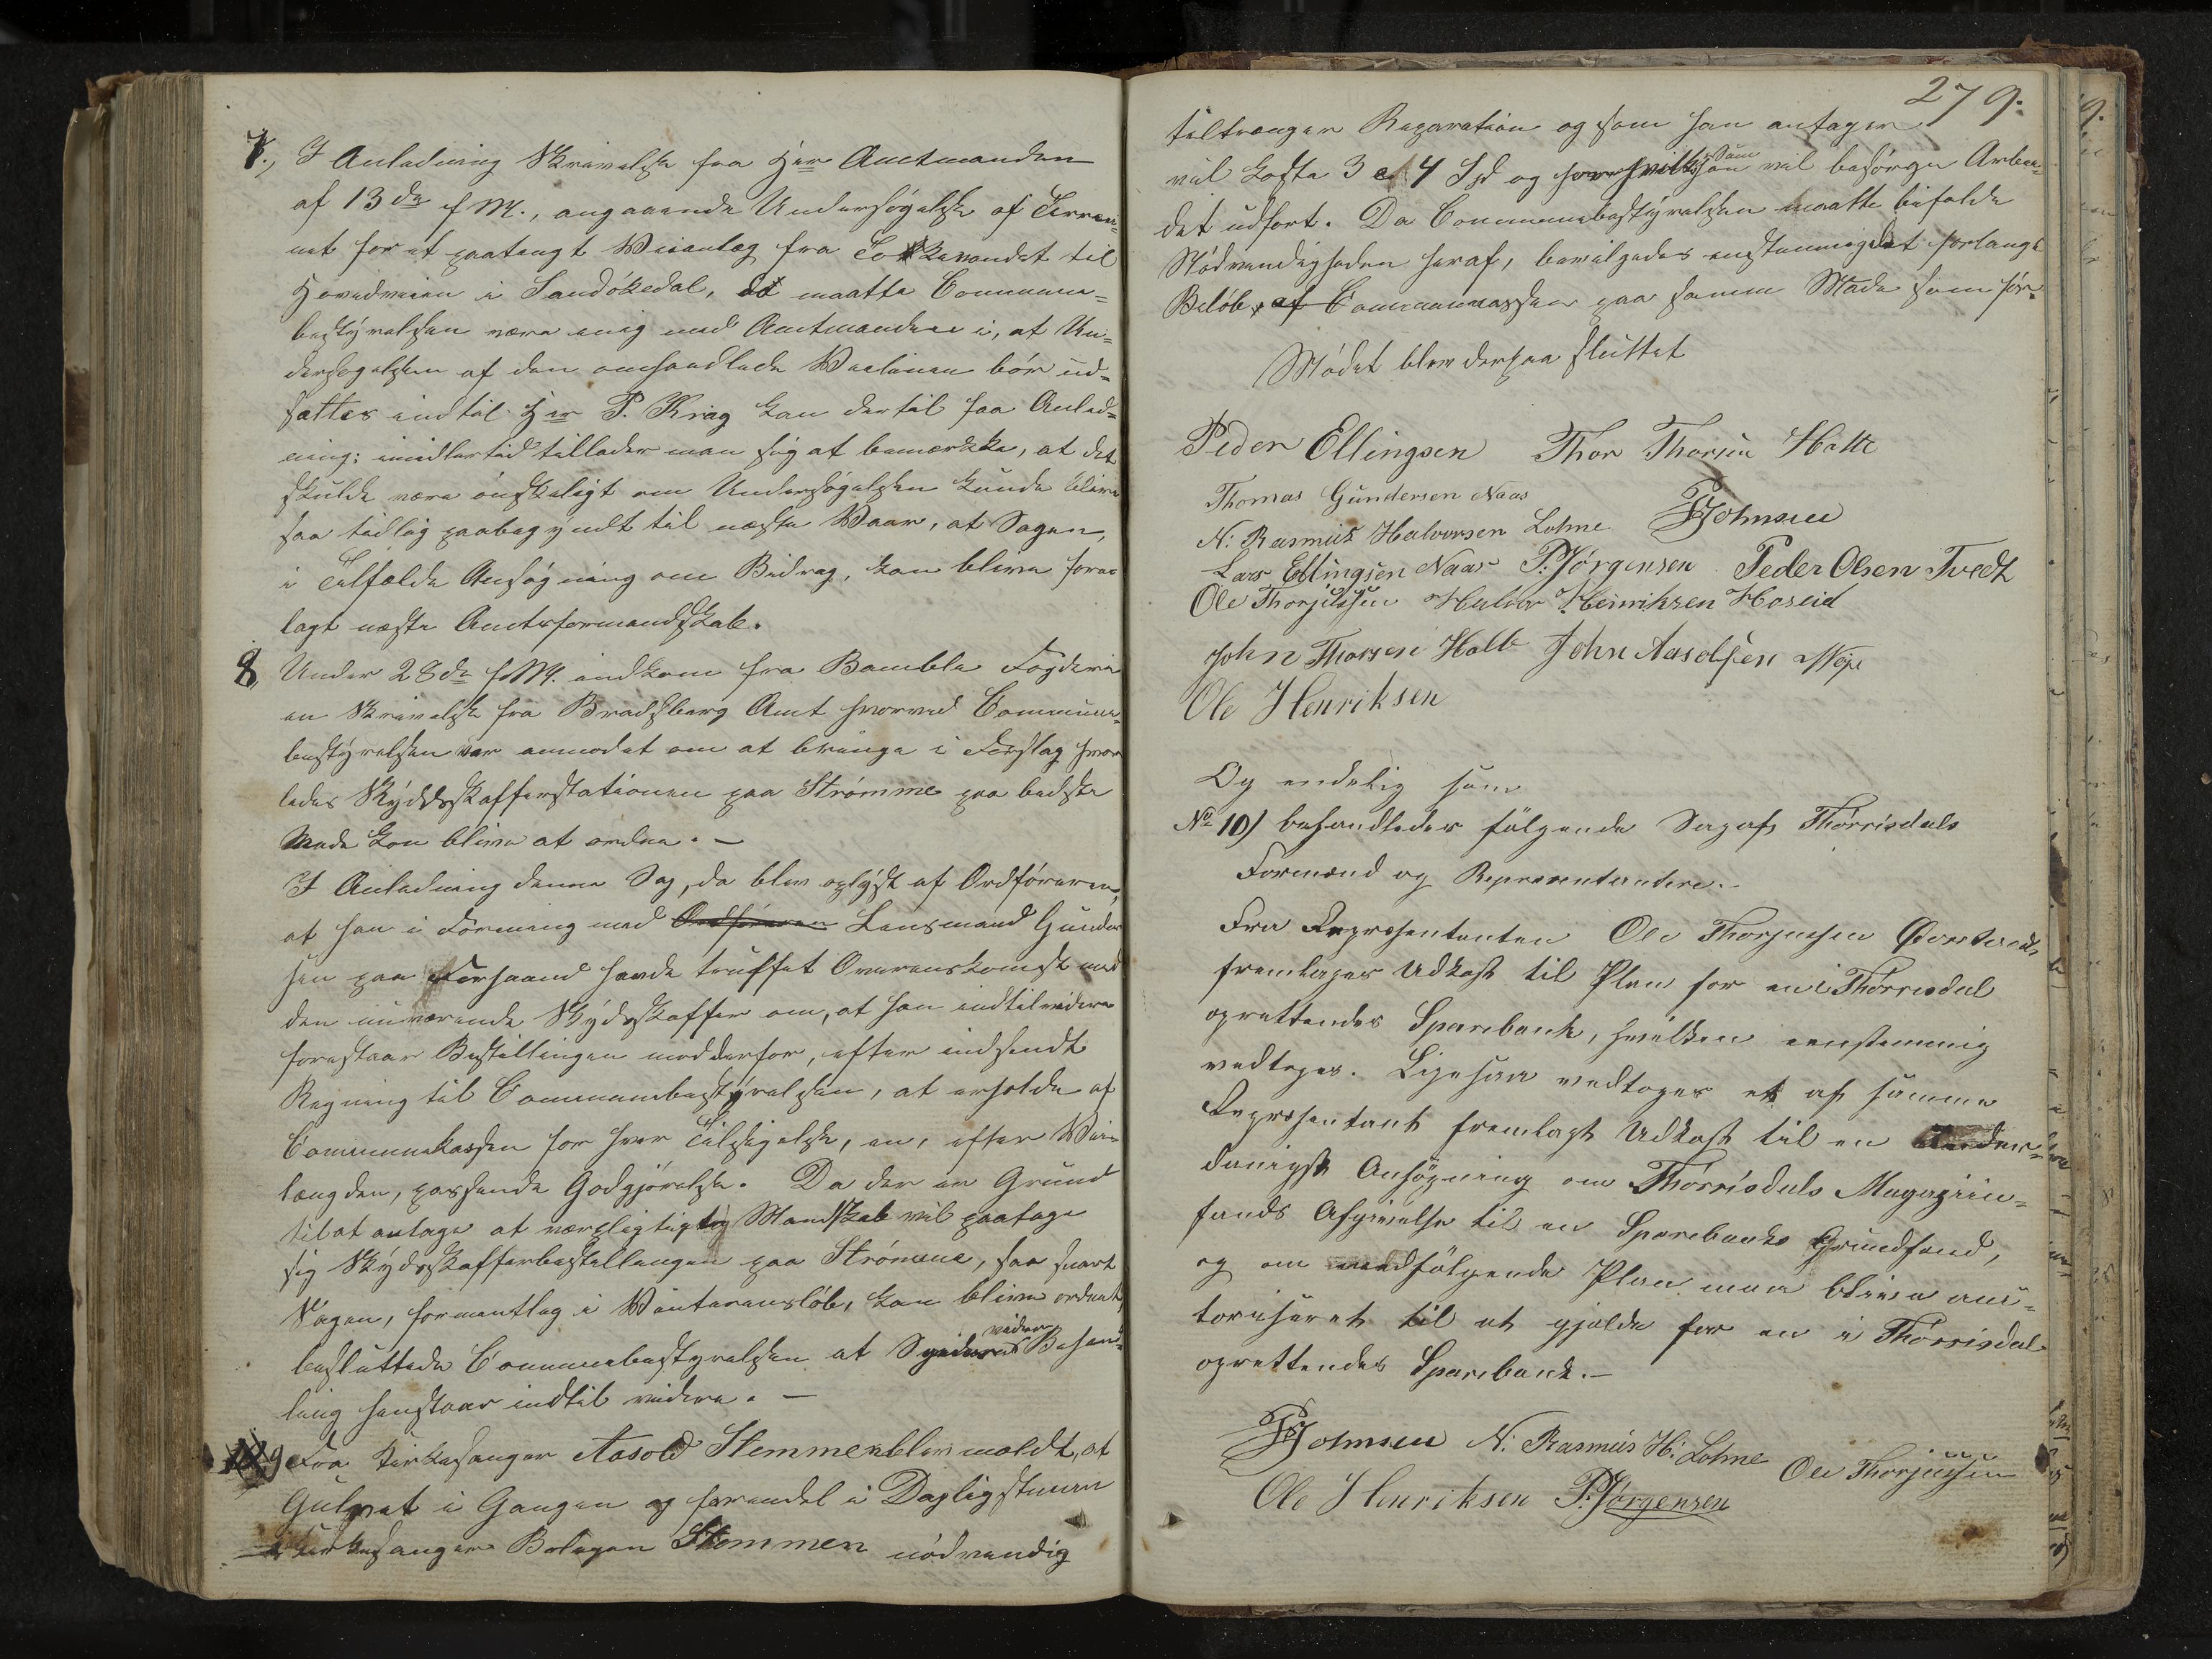 7., I Anledning Skrivelse fra Herr Amtmanden
af 13de f. M., angaaende Undersøgelse af Terræn-
net for et paatængt Veianlæg fra Tokkevandet til
Hovedveien i Sandökedal, da maatte Commune-
bestyrelsen være enig med Amtmanden i, at Un-
dersøgelsen af den omhandlede Veilinie bör ud-
sættes indtil Herr P. Krag kan dertil faa Anled-
ning; imidlertid tillader man sig at bemærke, at det
skulde være ønskeligt om Undersøgelsen kunde blive
saa tidlig paabegyndt til næste Vaar, at Sagen,
i Tilfælde Ansøgning om Bidrag, kan blive fore-
lagt næste Amtsformandskab.
8, Under 28de f. M. indkom fra Bamble Fogderi
en Skrivelse fra Bradsberg Amt hvorved Commune-
bestyrelsen var anmodet om at bringe i Forslag hvor
ledes Skydsskafferstationen paa Strømme paa bedste
Maade kan blive at ordne. —
I Anledning denne Sag, da blev oplyst af Ordføreren,
at han i Forening med Ordføreren Lensmand Gunder
sen paa Forhaand havde truffet Overenskomst med
den nuværende Skydsskaffer om, at han indtilvidere
forestaar Bestillingen mod derfor, efter indsendt
Regning til Communebestyrelsen, at erholde af
Communekassen for hver Tilsigelse, en, efter Vei-
længden, passende Godtgjørelse. Da der er Grund
til at antage at værpligtigtig Mandskab vil paatage
sig Skydsskafferbestillingen paa Strömme, saa snart
Sagen, formentlig i Vinterensløb, kan blive ordnet,
vidre
besluttede Communebestyrelsen at Sagens Behand-
ling henstaar indtil videre. —
9 Fra Kirkesanger Aasold Stemmen blev meldt, at
Gulvet i Gangen og forendel i Dagligstuen
Kirkesanger Boligen Stemmen nödvendig
279.
tiltrænger Reparation og som han antager
Som
vil koste 3 a 4 Spd og han vil besörge Arbei-
det udfört. Da Communebestyrelsen maatte bifalde
Nödvendigheden heraf, bevilgedes enstemmig det forlangte
Belöb, af Communekassen paa samme Maade som för.
Mödet blev derpaa sluttet
Peder Ellingsen Thor Thorsen Halte
Thomas Gundersen Naas
N: Rasmus Halvorsen Lohne Johnsen
Lars Ellingsen Naas P. Jørgensen Peder Olsen Tvedt
Ole Thorjussen Halvor Henriksen Hoseid
John Thorsen Halte John Aasolfsen
Ole Henriksen
Og endelig som
No 10) behandledes fölgende Sag af Thörrisdals
Formænd og Representantere.
Fra Repræsentanten Ole Thorjussen
fremlages Udkast til Plan for en i Thörrisdal
oprettendes Sparebank, hvilken eenstemmig
vedtoges. Ligesaa vedtoges et af samme
Repræsentant fremlagt Udkast til en under-
danigst Ansögning om Thörrisdals Magaziin-
fonds Afgivelse til en Sparebanks Grundfond,
og om medfölgende Plan maa blive au-
toriseret til at gjelde for en i Thörrisdal
oprettendes Sparebank. —
Johnsen N: Rasmus H: Lohne Ole Thorjussen
Ole Henriksen P. Jørgensen